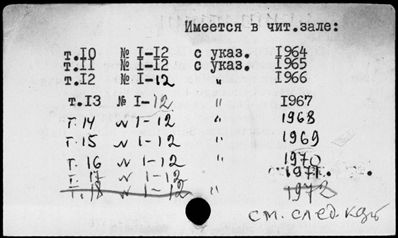 Имеется в чит.зале:
т.10 № I-I2 с указ. I964
т.11 № I-I2 с указ. I965
т.I2 № I-12 " I966
т.I3 № I-12 " I967
т.14 № 1-12 " 1968
т.15 № 1-12 " 1969
т.16 № 1-12 " 1970
т.17 № 1-12 1971.
т.18 № 1-12 " 1972
см. след.